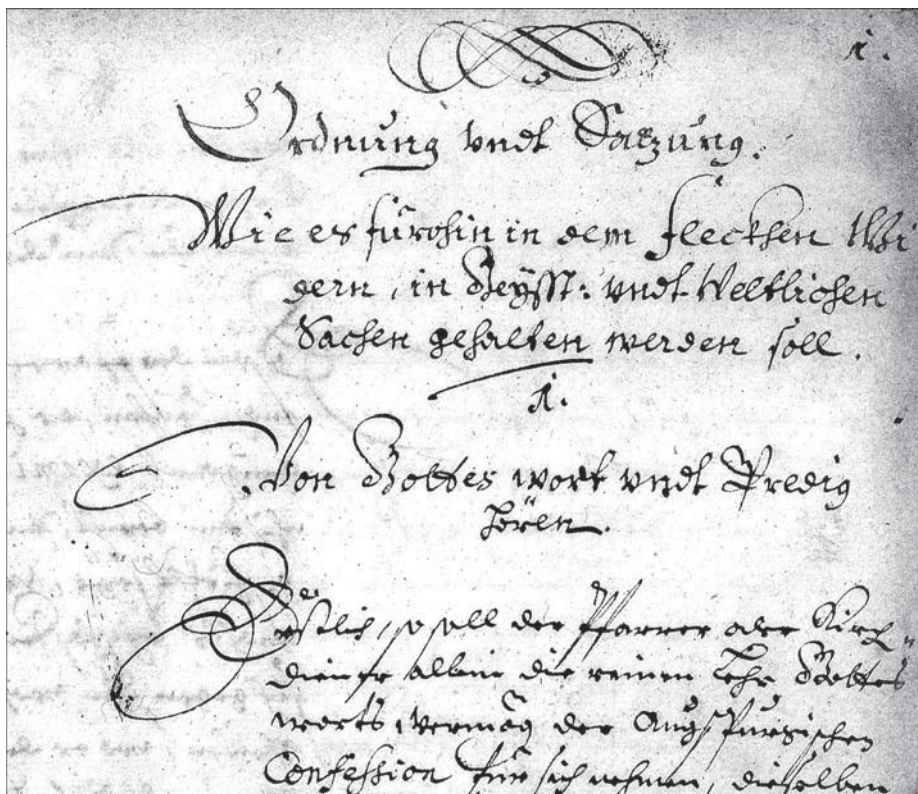 1.
Ordnung vndt Satzung.
Wie es fürohin in dem fleckhen Wi
dern, in Geÿstl: vndt Weltlichen
Sachen gehalten werden soll.
1.
Von Gottes wort vndt Predig
hören.
Erstlich, so soll der Pfarrer oder Kirch-
diener allein die reinen Lehr Gottes
worts, vermög der Augspurgischen
Confession für sich nehmen, dieselben